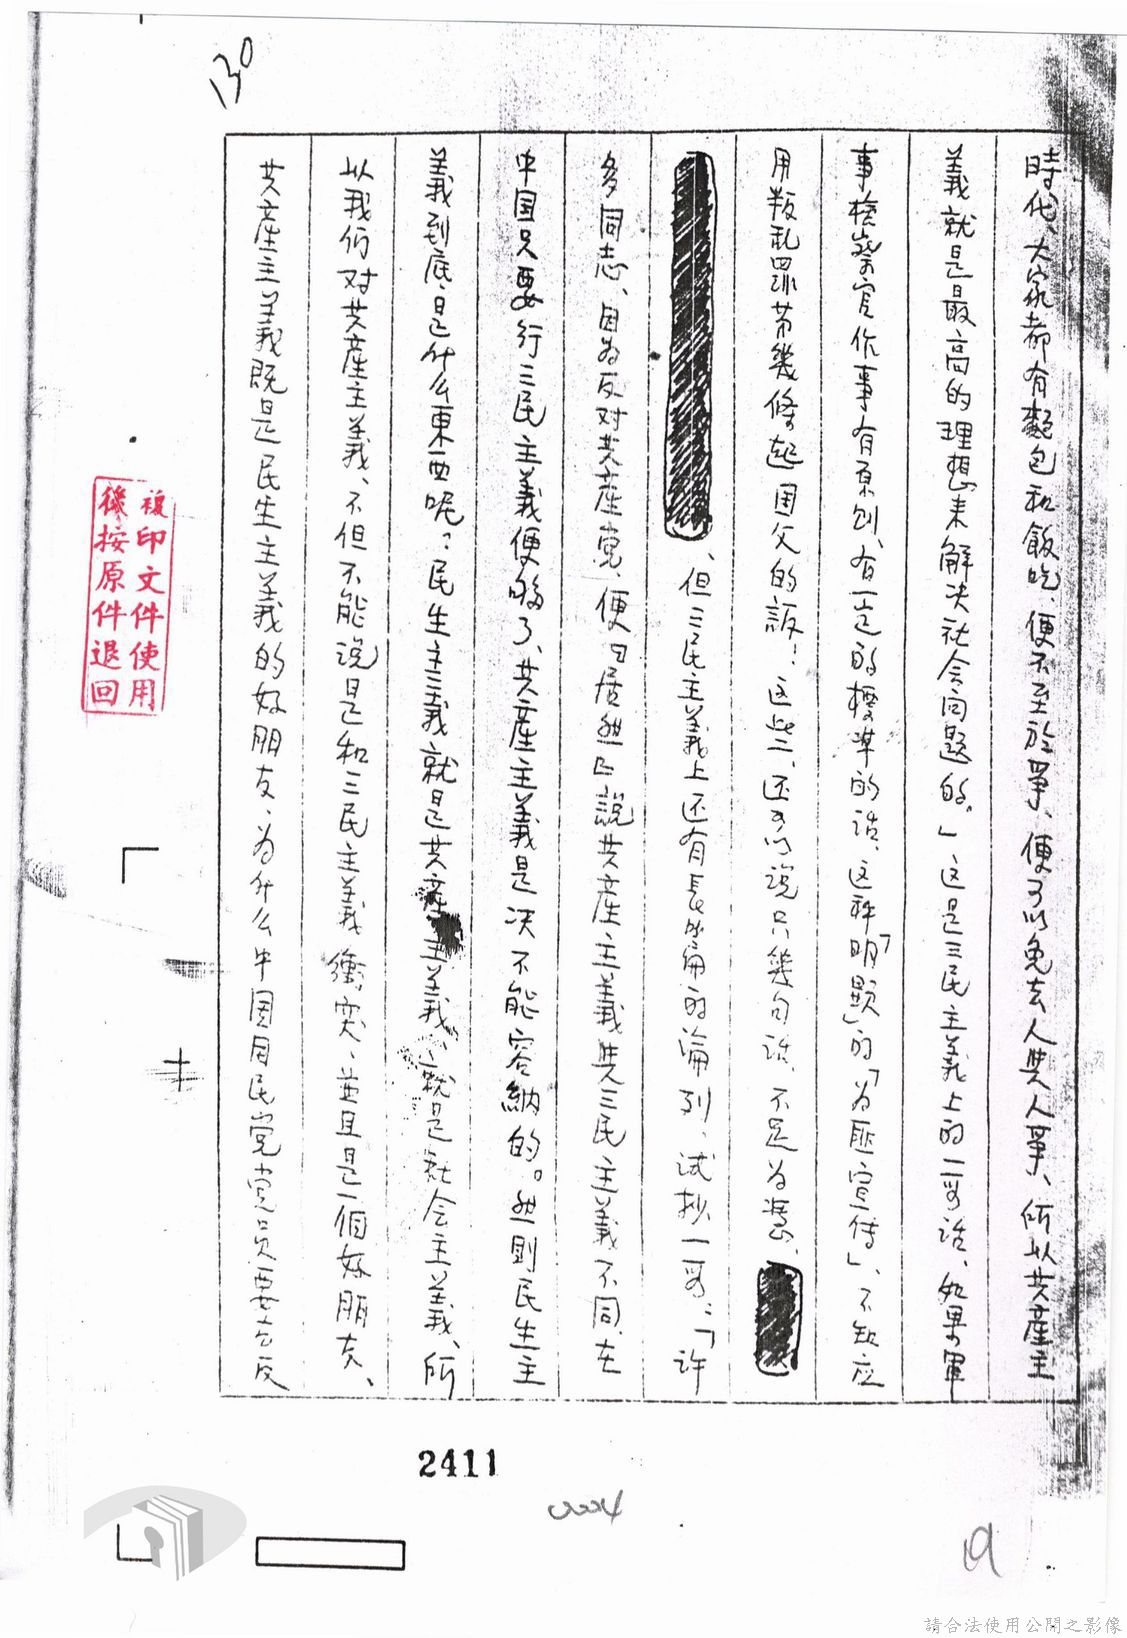 130
時代、大家都有麵包和飯吃、便不至於爭、便可以免去人與人爭、所以共產主
義就是最高的理想来解决社会问題的。」这是三民主義上的一段话、如果軍
事檢察官作事有原则、有一定的標準的话、这种「明顯」的「为匪宣传」、不知应
用叛乱罪第幾條起国父的訴!这些、还可以说只幾句话、不足为憑、
、但三民主義上还有長篇的論列、试抄一段:「许
多同志、因为反对共產党、便『居然』説共產主義與三民主義不同、在
中国只要行三民主義便够了、共產主義是决不能容納的。然則民生主
義到底是什么東西呢?民生主義就是共產主義、就是社会主義、所
以我们对共產主義、不但不能说是和三民主義衝突、並且是一個好朋友、
共產主義既是民生主義的好朋友、为什么中国国民党党员要去反
複印文件使用
後按原件退回
2411
0004
請合法使用公開之影像